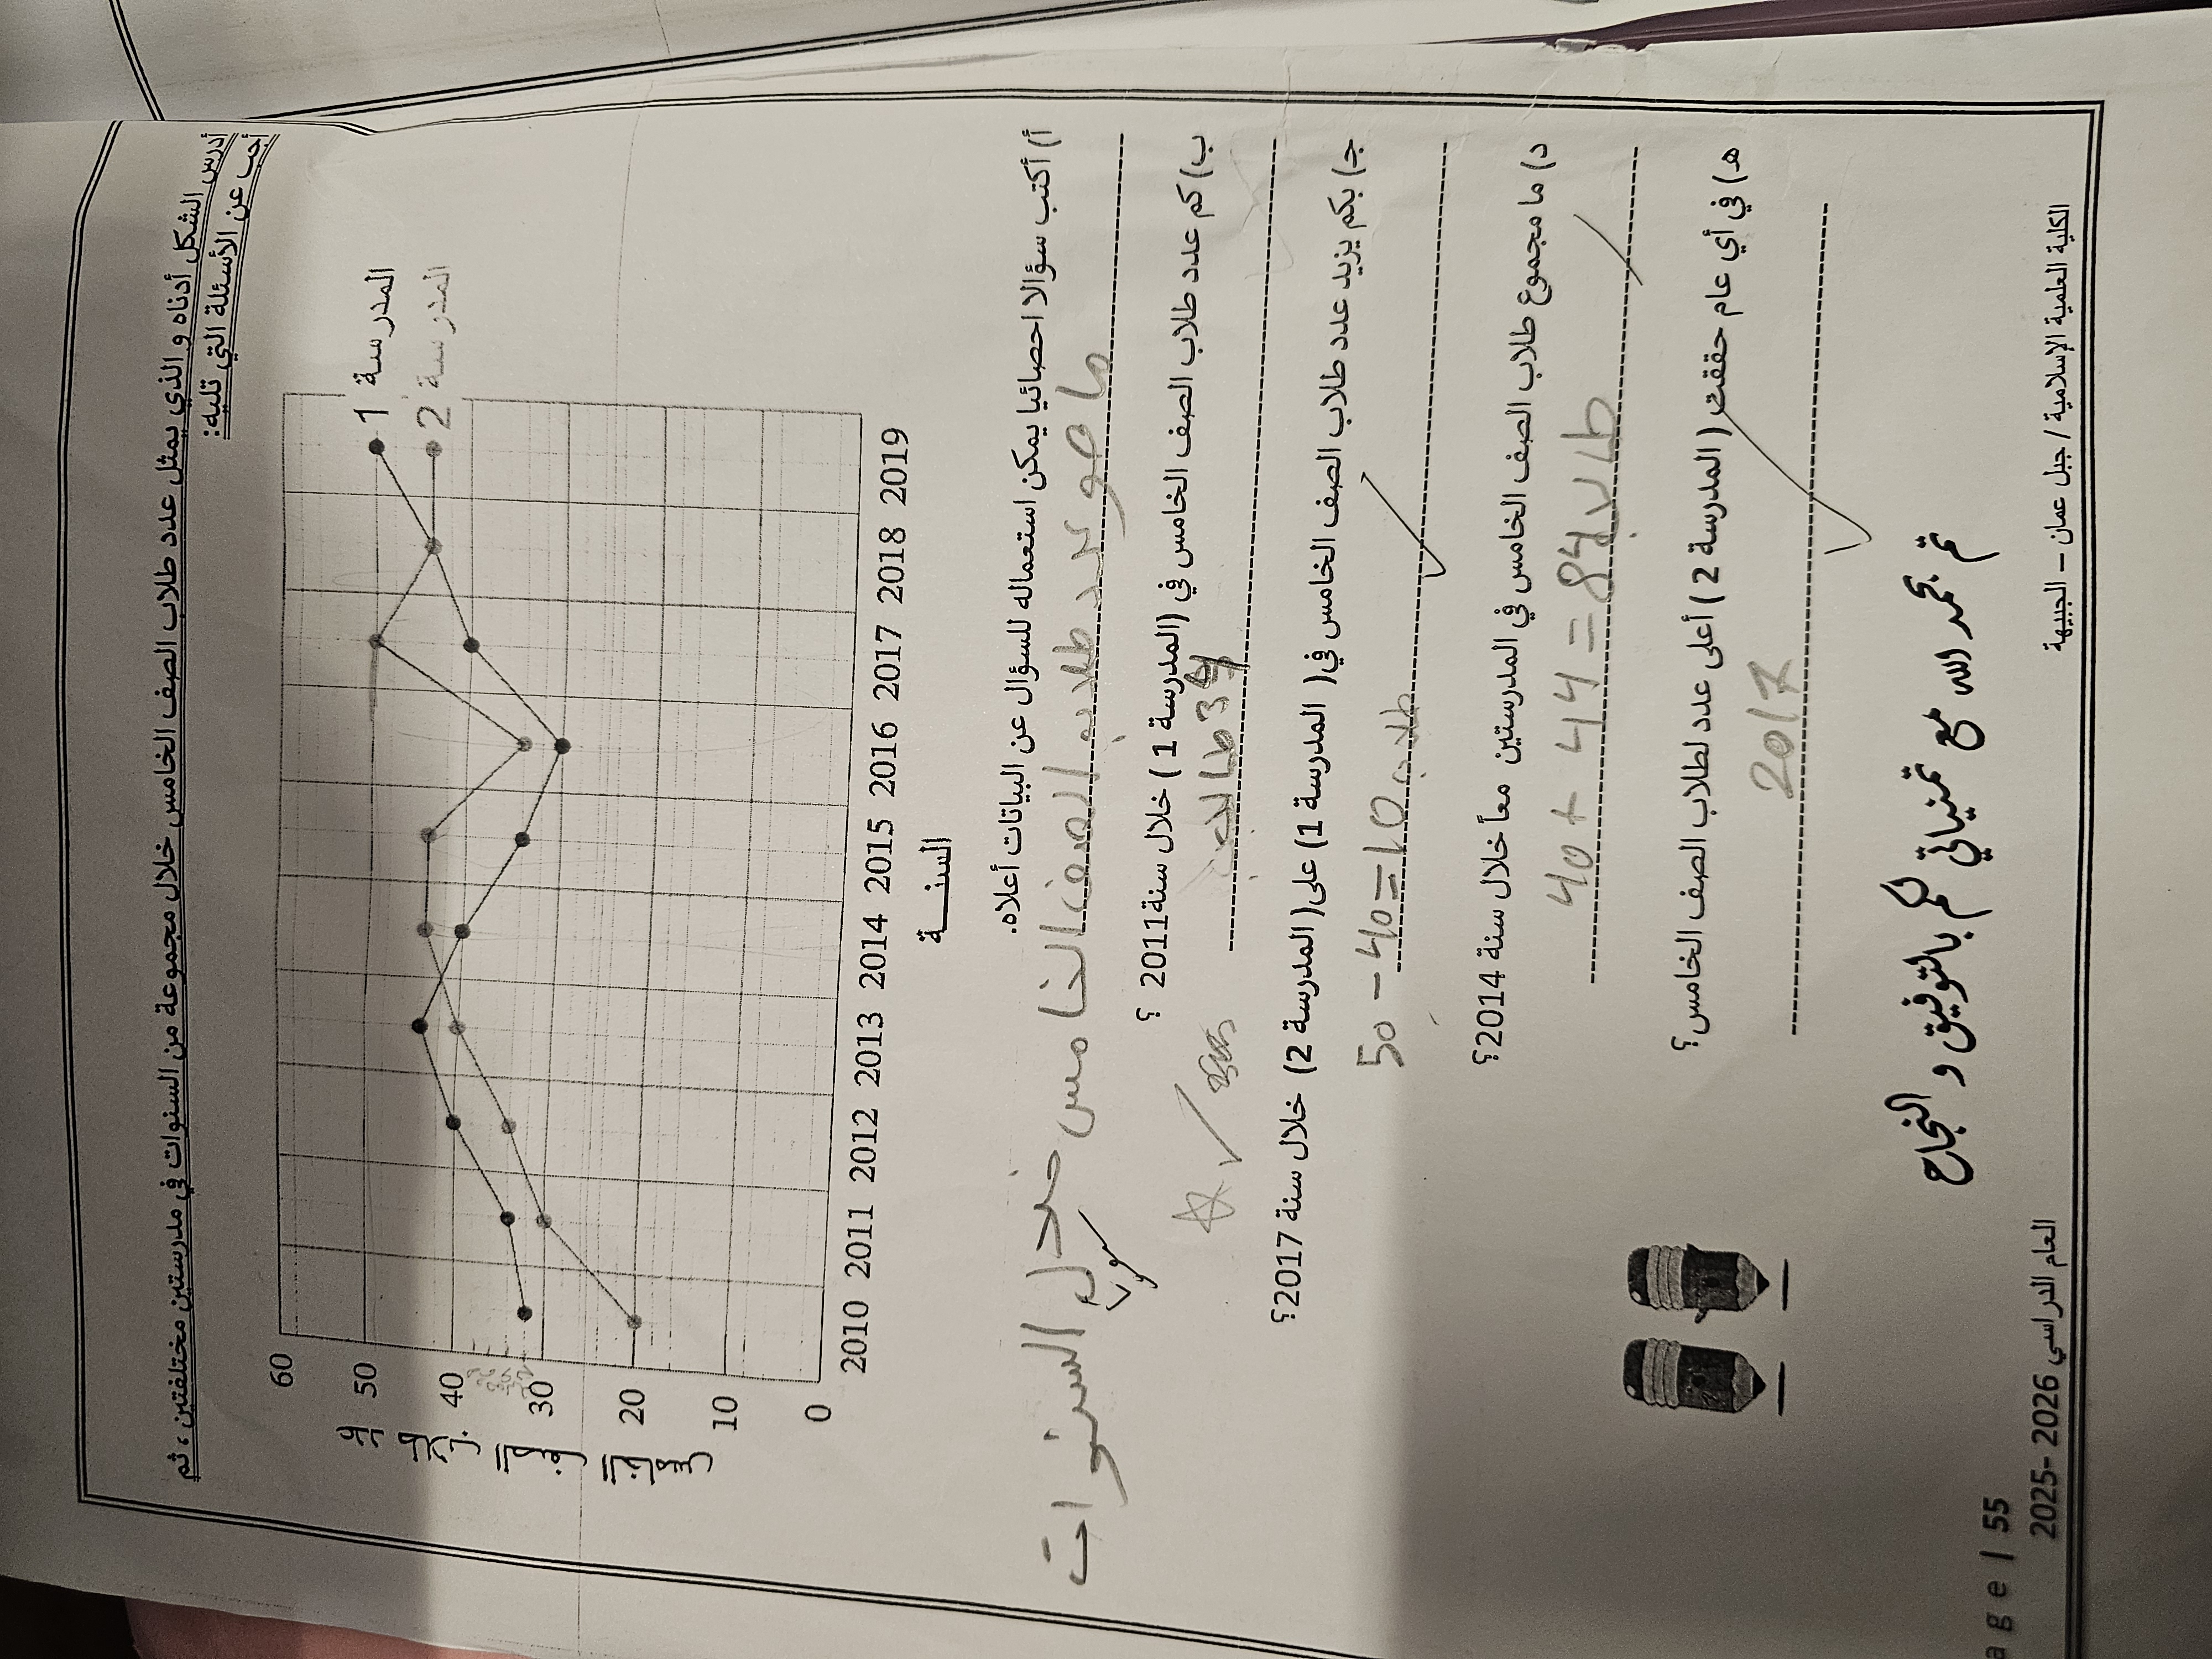 أدرس الشكل أدناه و الذي يمثل عدد طلاب الصف الخامس خلال مجموعة من السنوات في مدرستين مختلفتين ، ثم
أجب عن الأسئلة التي تليه:
60
50
40
30
20
10
0
المدرسة 1
المدرسة 2
2010 2011 2012 2013 2014 2015 2016 2017 2018 2019
السنــــة
أ) أكتب سؤالا احصائيا يمكن استعماله للسؤال عن البيانات أعلاه.
ما هو عدد طلاب الصف الخامس خلال السنوات
ب) كم عدد طلاب الصف الخامس في (المدرسة 1 ) خلال سنة 2011 ؟
34 طالب
جـ) بكم يزيد عدد طلاب الصف الخامس في( المدرسة 1) على( المدرسة 2) خلال سنة 2017؟
50 - 40 = 10 طلاب
د) ما مجموع طلاب الصف الخامس في المدرستين معاً خلال سنة 2014؟
40 + 44 = 84 طالب
هـ) في أي عام حققت ( المدرسة 2 ) أعلى عدد لطلاب الصف الخامس؟
2017
تم بحمد الله مع تمنياتي لكم بالتوفيق و النجاح
الكلية العلمية الإسلامية / جبل عمان – الجبيهة
العام الدراسي 2026 -2025
age | 55